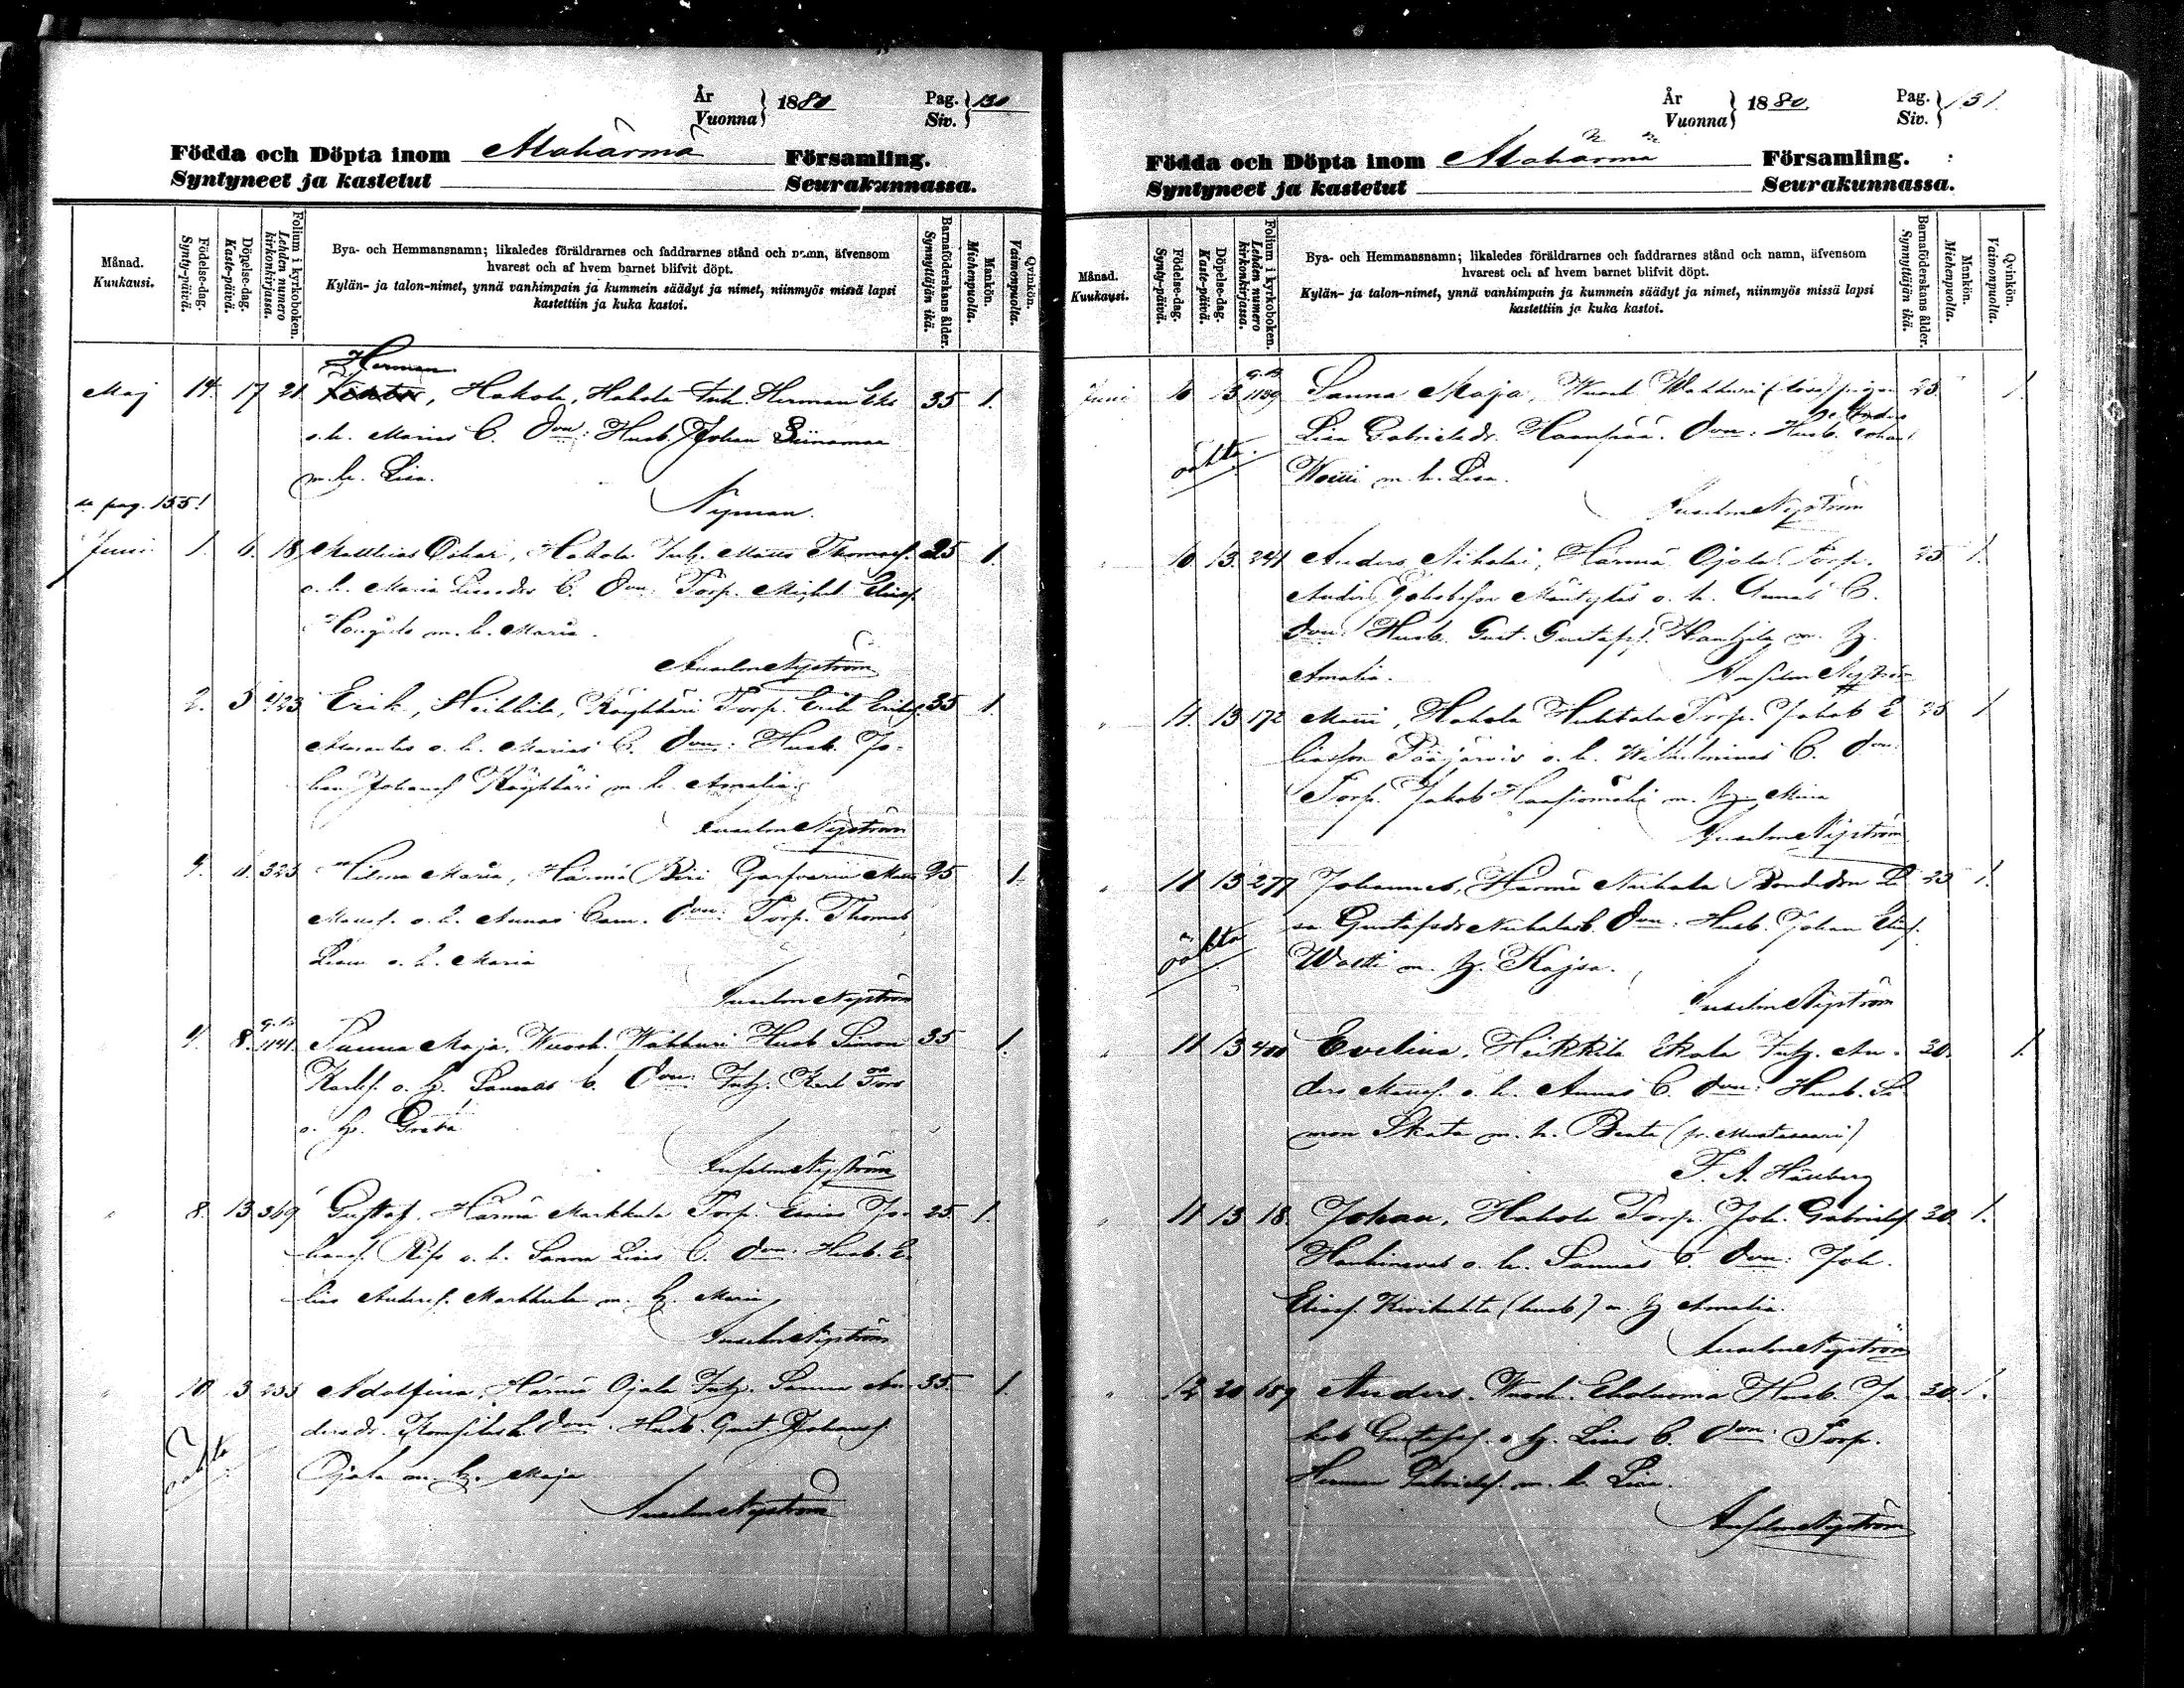 År
Vuonna } 1880
Pag.
Siv. } 150
Födda och Döpta inom Alahärmä Församling.
Syntyneet ja kastetut Seurakunnassa.
Månad.
Kuukausi.
Födelse-dag.
Synty-päivä.
Döpelse-dag.
Kaste-päivä.
Folium i kyrkoboken.
Lehden numero
kirkonkirjassa.
Bya- och Hemmansnamn; likaledes föräldrarnes och faddrarnes stånd och namn, äfvensom
hvarest och af hvem barnet blifvit döpt.
Kylän- ja talon-nimet, ynnä vanhimpain ja kummein säädyt ja nimet, niinmyös missä lapsi
kastettiin ja kuka kastoi.
Barnaföderskans ålder.
Synnyttäjän ikä.
Mankön.
Miehenpuolta.
Qvinkön.
Vaimonpuolta.
Herman
Maj 14. 17 21 Hakola, Hakola Herman 35 1.
o. h. Marias C. Dvn: Husb. Johan
m. h. Lisa.
Nyman.
pag. 155!
Juni 1. 6. 18 Matthias Oskar, Hakola Inh. Matts Thomasf. 25 1.
o. h. Maria C. Dvn: Torp. Michel Eliasf.
m. h. Maria.
Anselm Nyström
2. 5 423 Erik, Heikkilä, Köykkäri Torp. Erik Eriksf. 35 1.
o. h. Marias C. Dvn: Husb. Jo-
han Johansf. Köykkäri m. h. Amalia.
Anselm Nyström
4. 6. 323 Hilma Maria, Härmä Matts 25 1.
Mattsf. o. h. Annas Dvn: Torp. Thomas
o. h. Maria
Anselm Nyström
4. 8. 1141 Sanna Maja, Wuosk. Wakkuri Husb. Simon 35 1.
Karlsf. o. h. Sannas C. Dvn: Inh. Karl
o. h. Greta
Anselm Nyström
8. 13 369 Gustaf, Härmä Markkula Torp. Elias Jo- 25 1.
hansf. o. h. Sanna Lisas C. Dvn: Husb. E-
lias Andersf. Markkula m. h. Maria
Anselm Nyström
10 13 Adolfina, Härmä Ojala Inh. Sanna An- 35 1.
dersdr. Dvn: Husb. Gust. Johansf.
oäkta Ojala m. h. Maja
Anselm Nyström
År
Vuonna } 1880
Pag.
Siv. } 151.
Födda och Döpta inom Alahärmä Församling.
Syntyneet ja kastetut Seurakunnassa.
Månad.
Kuukausi.
Födelse-dag.
Synty-päivä.
Döpelse-dag.
Kaste-päivä.
Folium i kyrkoboken.
Lehden numero
kirkonkirjassa.
Bya- och Hemmansnamn; likaledes föräldrarnes och faddrarnes stånd och namn, äfvensom
hvarest och af hvem barnet blifvit döpt.
Kylän- ja talon-nimet, ynnä vanhimpain ja kummein säädyt ja nimet, niinmyös missä lapsi
kastettiin ja kuka kastoi.
Barnaföderskans ålder.
Synnyttäjän ikä.
Mankön.
Miehenpuolta.
Qvinkön.
Vaimonpuolta.
Juni 10 13 1139 Sanna Maja, Wuosk. Wakkuri pigan 25 1.
Lisa Gabrielsdr. Haanpää. Dvn: Husb. Johan
oäkta. m. h. Lisa.
Anselm Nyström
10 13. 241 Anders Nikolai, Härmä Ojala Torp. 25 1.
Anders Jakobsson Mäntykas o. h. Annas C.
Dvn: Husb. Gust. Gustafsf. m. h.
Amalia. Anselm Nyström
11. 13 172 Matti, Hakola Huhtala Torp. Jakob E- 25 1
liasson Pääjärvis o. h. Wilhelminas C. Dvn:
Torp. Jakob Haapiomäki m. h. Mina
Anselm Nyström
11 13 277 Johannes, Härmä Bondedr. Li- 25 1.
sa Gustafsdr C. Dvn: Husb. Johan Eliasf.
oäkta m. h. Kajsa.
Anselm Nyström
11 13 400 Evelina, Heikkilä Ekola Inh. An- 30. 1.
ders Mattsf. o. h. Annas C. Dvn: Husb. Si-
mon Skata m. h. Beata (fr. Mustasaari)
F. A. Hällberg
11 13 18. Johan, Hakola Torp. Joh. Gabrielsf. 30. 1.
o. h. Sannas C. Dvn: Joh.
Eliasf. Kivihuhta (husb) m. h. Amalia.
Anselm Nyström
12 20 689 Anders, Wuosk. Ekoluoma Husb. Ja- 30. 1.
kob Gustafsf. o. h. Lisas C. Dvn: Torp.
Herman Gabrielsf. m. h. Lisa.
Anselm Nyström